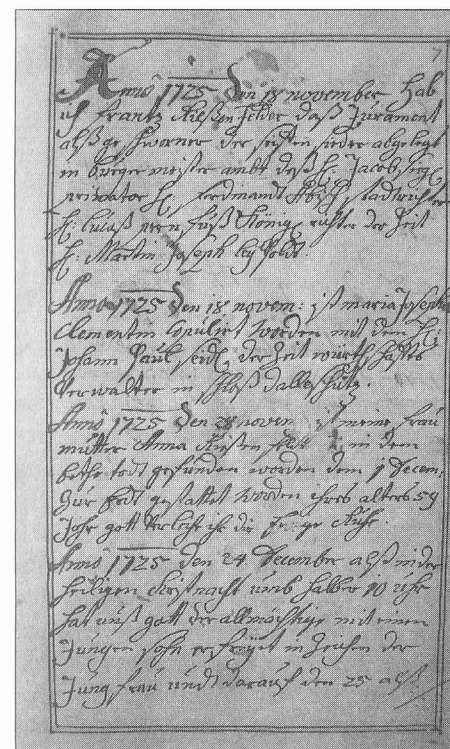 7
Anno 1725 den 18 november hab
ich Frantz Riessenfelder daß Jurament
alß geschworner der seiffen sieder abgelegt
in burgermeister ambt deß H: Jacob
H: Ferdinandt stadtrichter
H: lucaß König richter der Zeit
H: Martin Joseph leypoldt.
Anno 1725 den 18 novem: ist maria Josepha
Clementin copulirt worden mit dem H:
Johann Paul seidl der Zeit würthschaffts
verwalter in schloß
Anno 1725 den 28 novem ist meine frau
mutter Anna in dem
bethe todt gefunden worden dem 1 Decem:
Zur Erdt gestattet worden ihres alters 59
Jahr gott verleihe ihr die Ruhe.
Anno 1725 den 24 December alß in der
heiligen Christnacht umb halber 10 uhr
hat unß gott der allmächtige mit einem
Jungen sohn erfreyet in Zeichen der
Jungfrau undt darauf den 25 alß